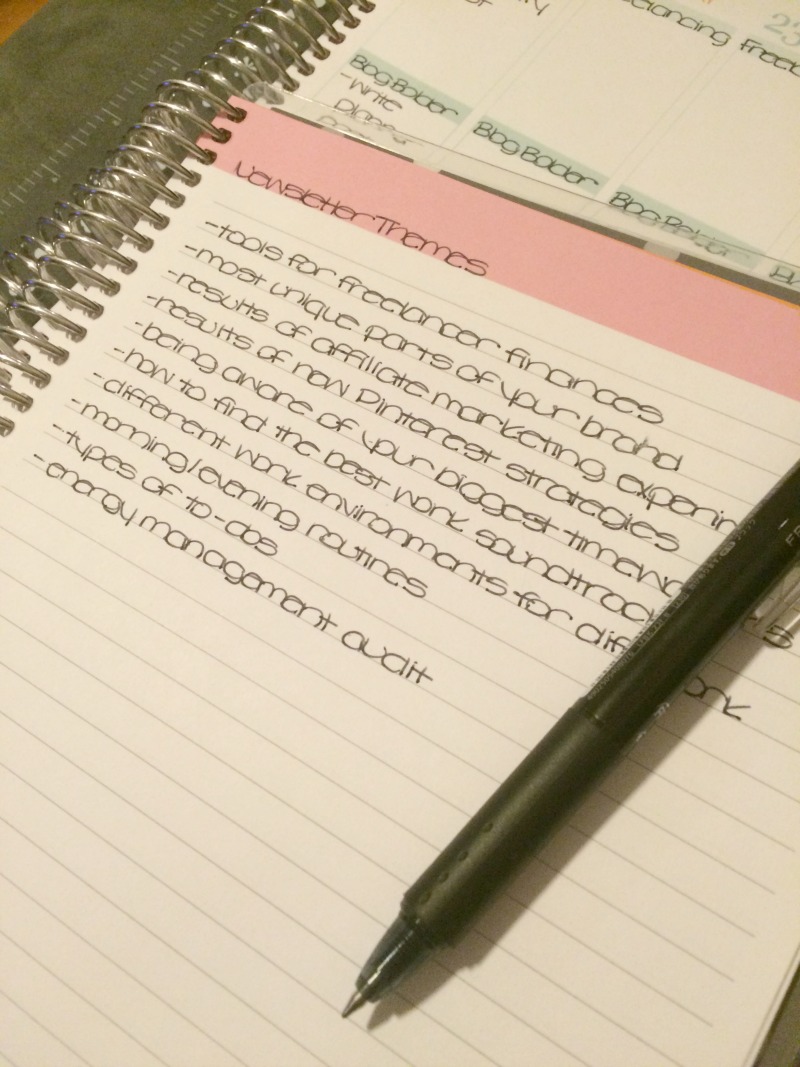 23
Freelancing
Blog Bolder
-write
Blog Bolder
Blog Bolder
Newsletter Themes
-tools for freelancer finances
-most unique parts of your brand
-results of affiliate marketing
-results of new Pinterest strategies
-being aware of your biggest
-how to find the best work
-different work environments for
-morning/evening routines
-types of to-dos
-energy management audit